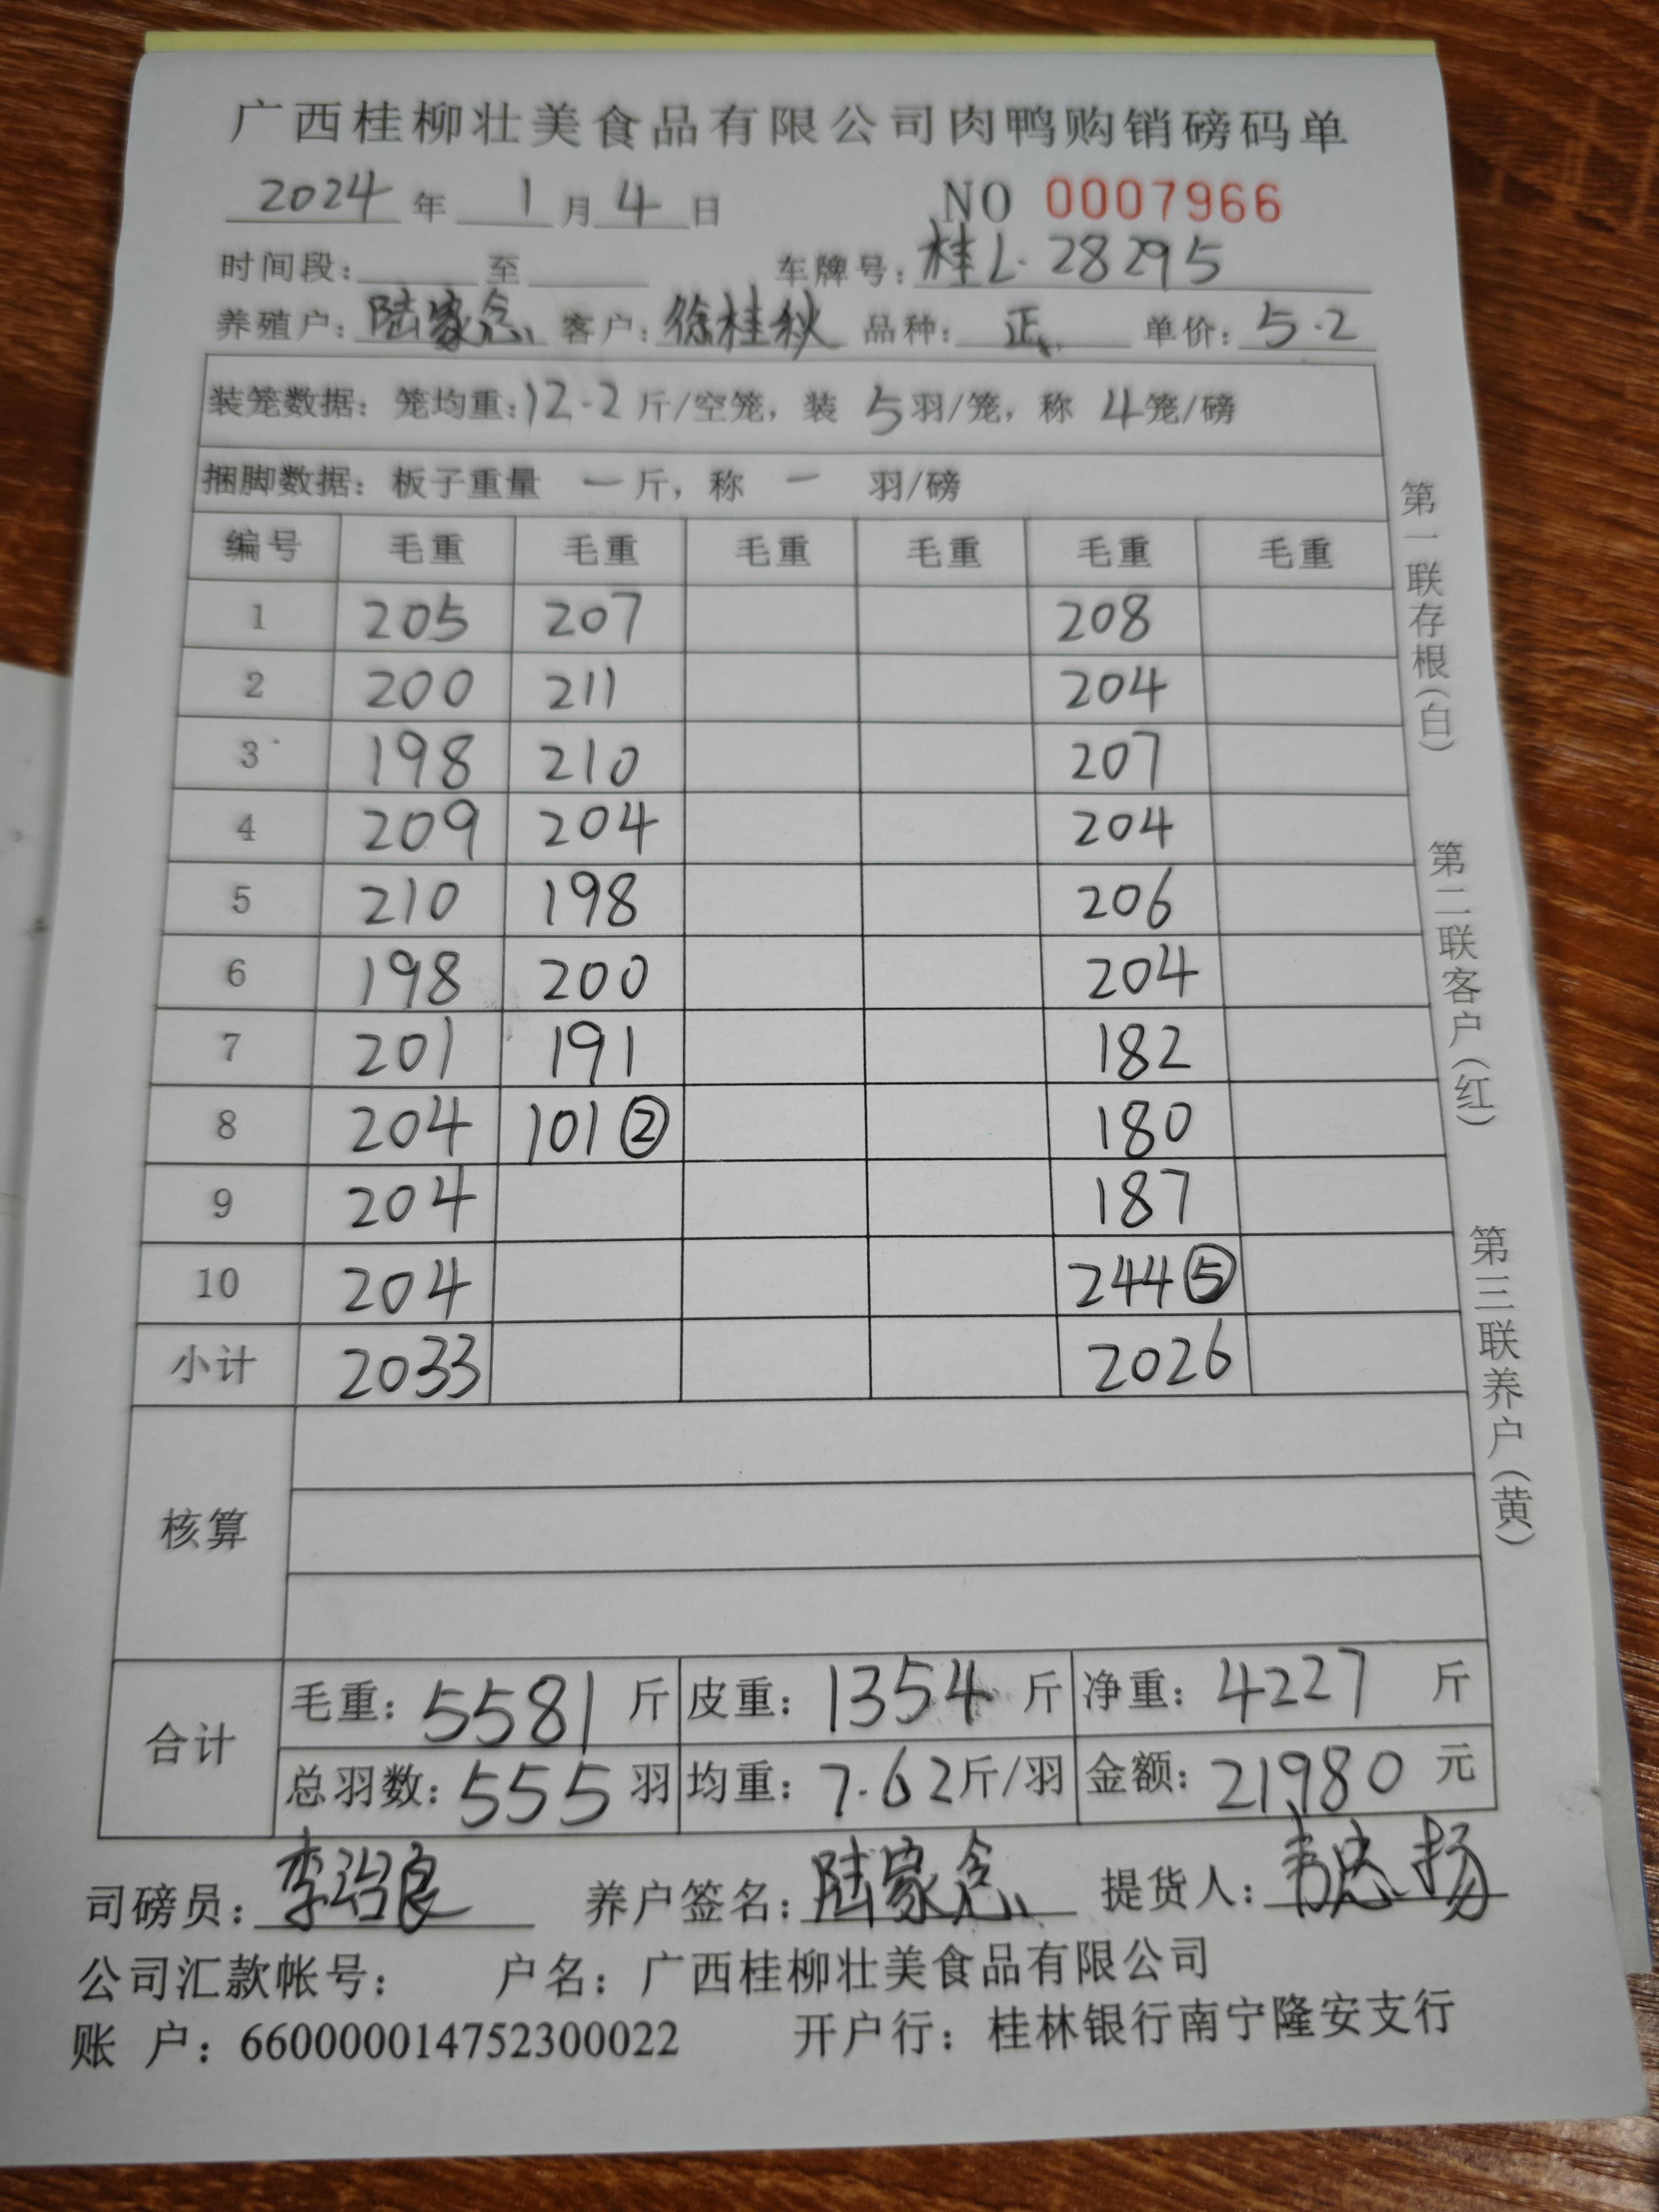 广西桂柳壮美食品有限公司肉鸭购销磅码单
2024 年 1 月 4 日 NO 0007966
时间段: 至 车牌号: 桂L·28295
养殖户: 陆家念 客户: 徐桂秋 品种: 正 单价: 5.2
装笼数据: 笼均重: 12.2 斤/空笼, 装 5 羽/笼, 称 4 笼/磅
捆脚数据: 板子重量 一 斤, 称 一 羽/磅
编号 毛重 毛重 毛重 毛重 毛重 毛重
1 205 207 208
2 200 211 204
3 198 210 207
4 209 204 204
5 210 198 206
6 198 200 204
7 201 191 182
8 204 101② 180
9 204 187
10 204 244⑤
小计 2033 2026
核算
合计
毛重: 5581 斤 皮重: 1354 斤 净重: 4227 斤
总羽数: 555 羽 均重: 7.62 斤/羽 金额: 21980 元
司磅员: 李治良 养户签名: 陆家念 提货人: 韦忠扬
公司汇款帐号: 户名: 广西桂柳壮美食品有限公司
账 户: 660000014752300022 开户行: 桂林银行南宁隆安支行
第一联存根(白)
第二联客户(红)
第三联养户(黄)